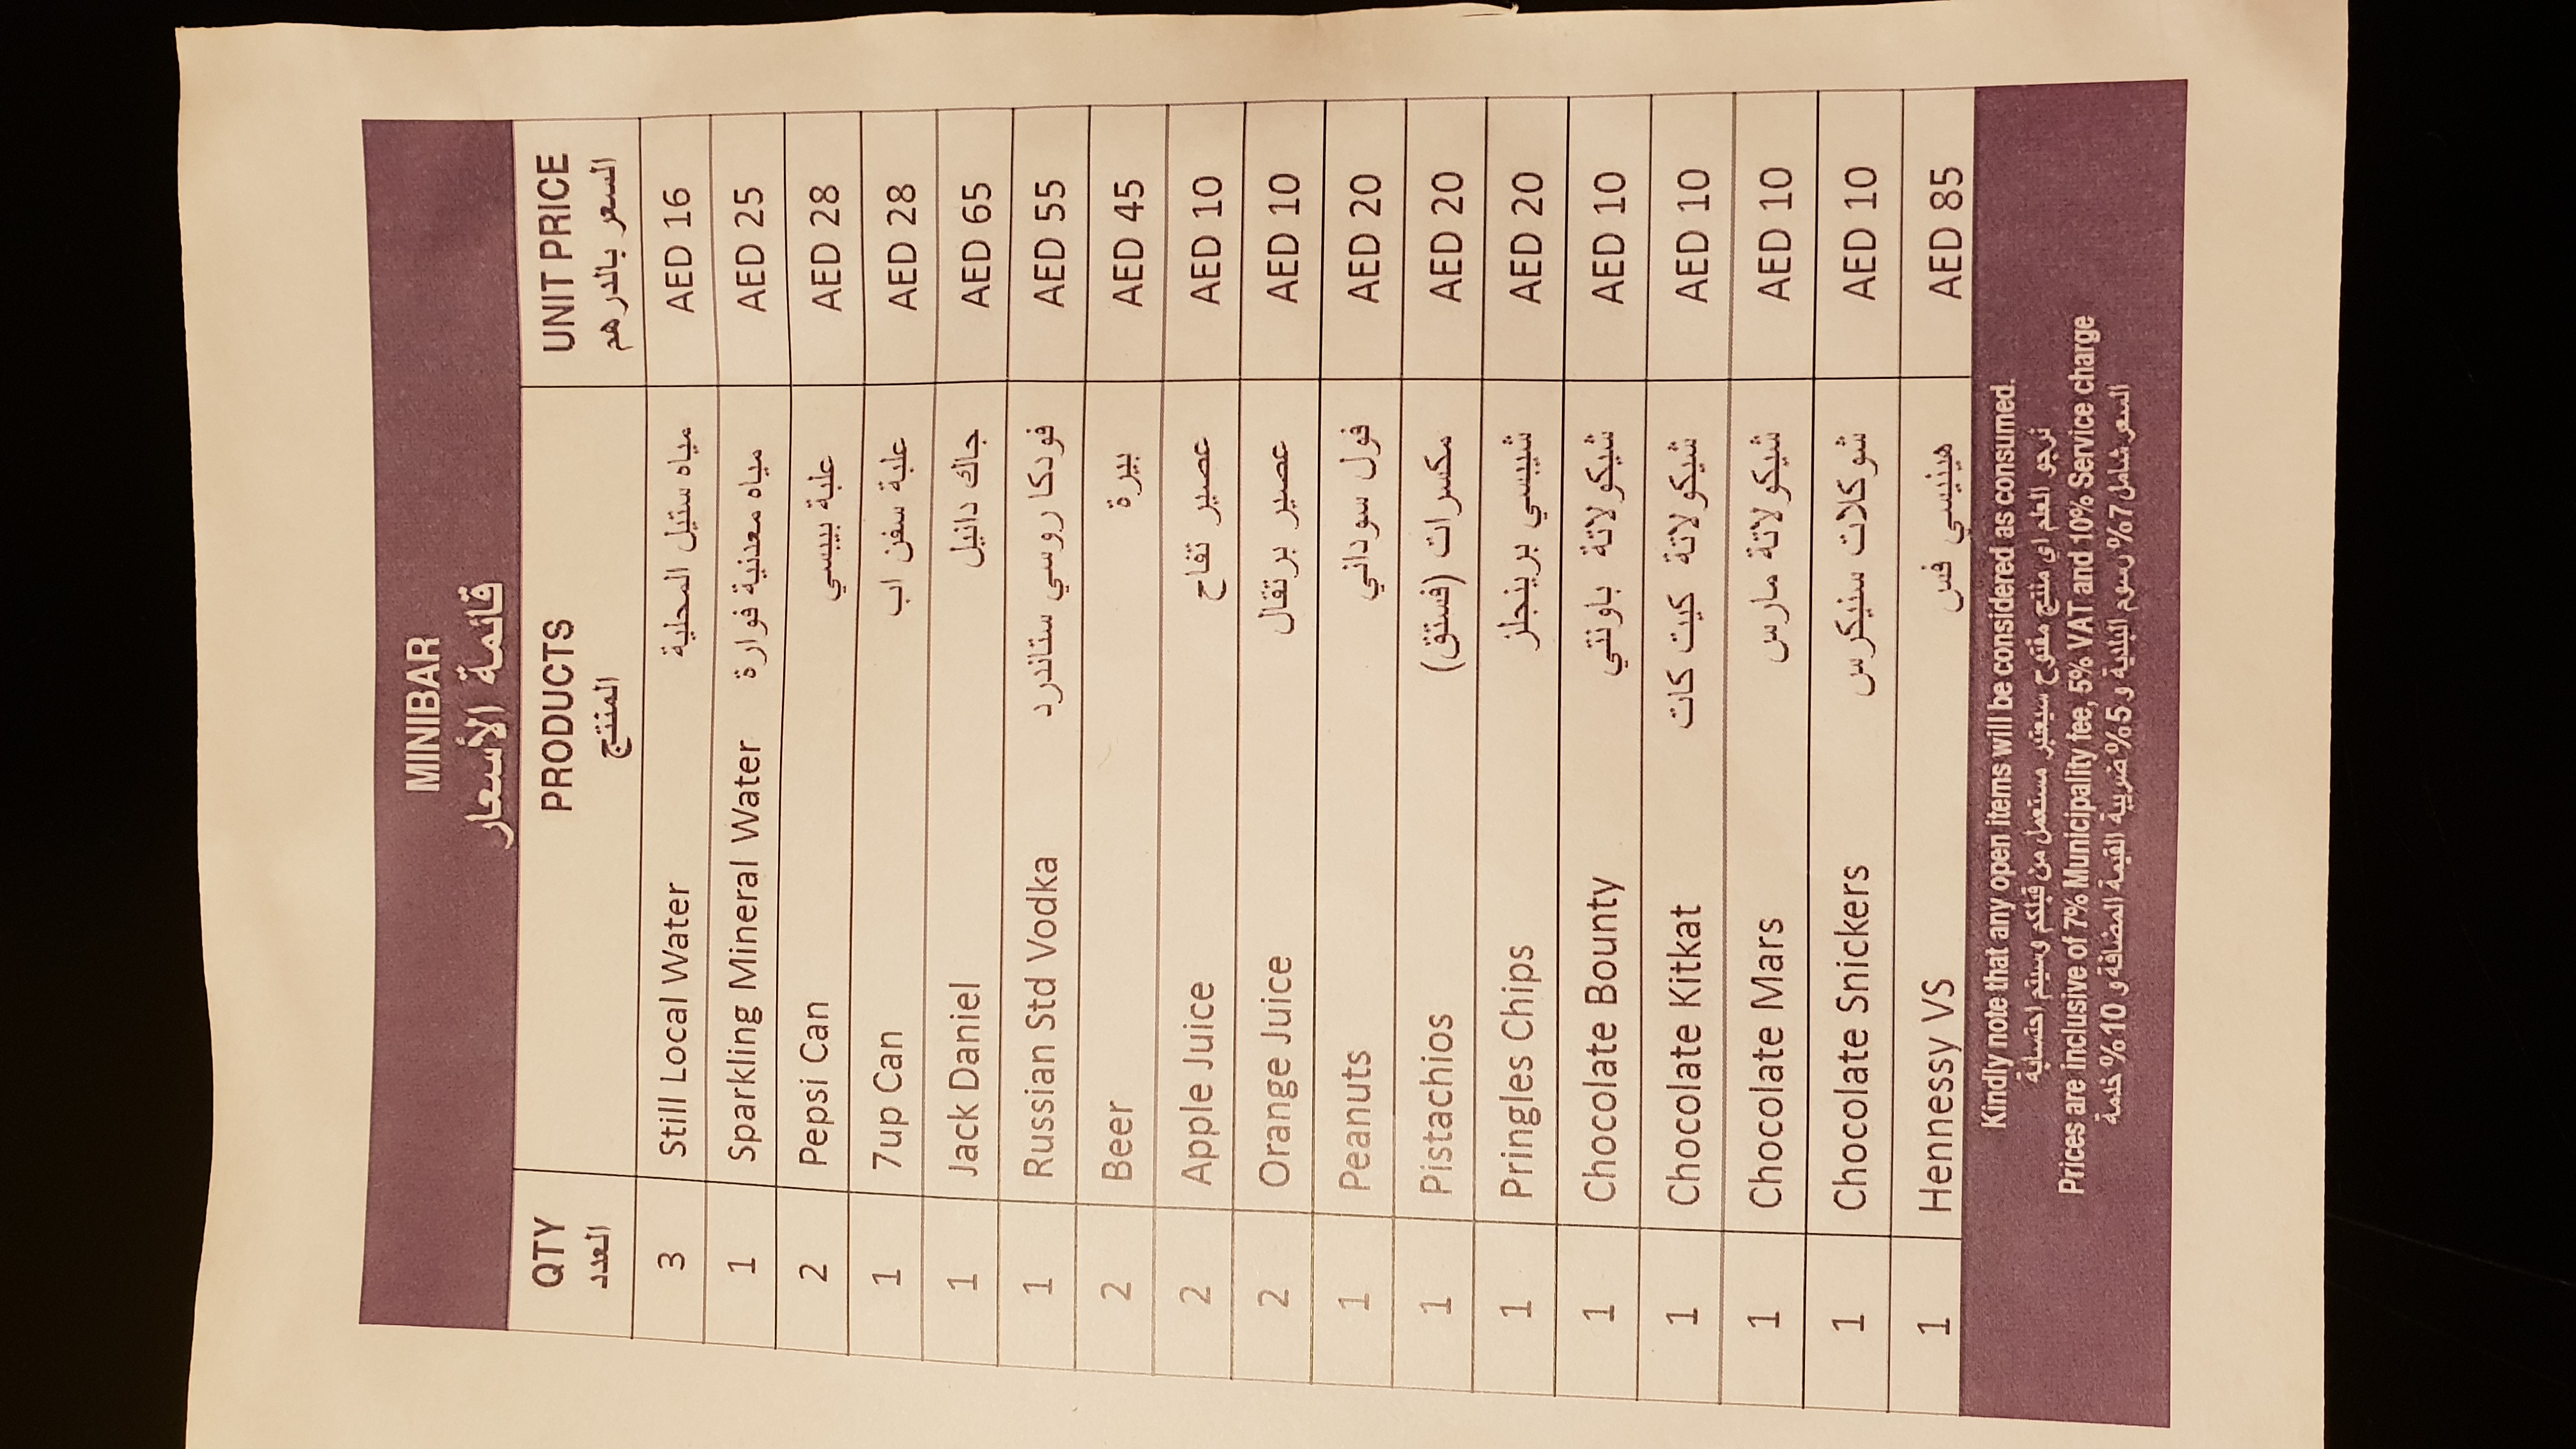 MINIBAR
قائمة الأسعار
QTY PRODUCTS UNIT PRICE
العدد المنتج السعر بالدرهم
3 Still Local Water مياه ستيل المحلية AED 16
1 Sparkling Mineral Water مياه معدنية فوارة AED 25
2 Pepsi Can علبة بيبسي AED 28
1 7up Can علبة سفن اب AED 28
1 Jack Daniel جاك دانيل AED 65
1 Russian Std Vodka فودكا روسي ستاندرد AED 55
2 Beer بيرة AED 45
2 Apple Juice عصير تفاح AED 10
2 Orange Juice عصير برتقال AED 10
1 Peanuts فول سوداني AED 20
1 Pistachios مكسرات (فستق) AED 20
1 Pringles Chips شيبسي برينجلز AED 20
1 Chocolate Bounty شيكولاتة باونتي AED 10
1 Chocolate Kitkat شيكولاتة كيت كات AED 10
1 Chocolate Mars شيكولاتة مارس AED 10
1 Chocolate Snickers شوكلات سنيكرس AED 10
1 Hennessy VS هينيسي فس AED 85
Kindly note that any open items will be considered as consumed.
نرجو العلم اي منتج مفتوح سيعتبر مستعمل من قبلكم وسيتم احتسابة
Prices are inclusive of 7% Municipality fee, 5% VAT and 10% Service charge
السعر شامل 7% رسوم البلدية و 5% ضريبة القيمة المضافة و 10% خدمة